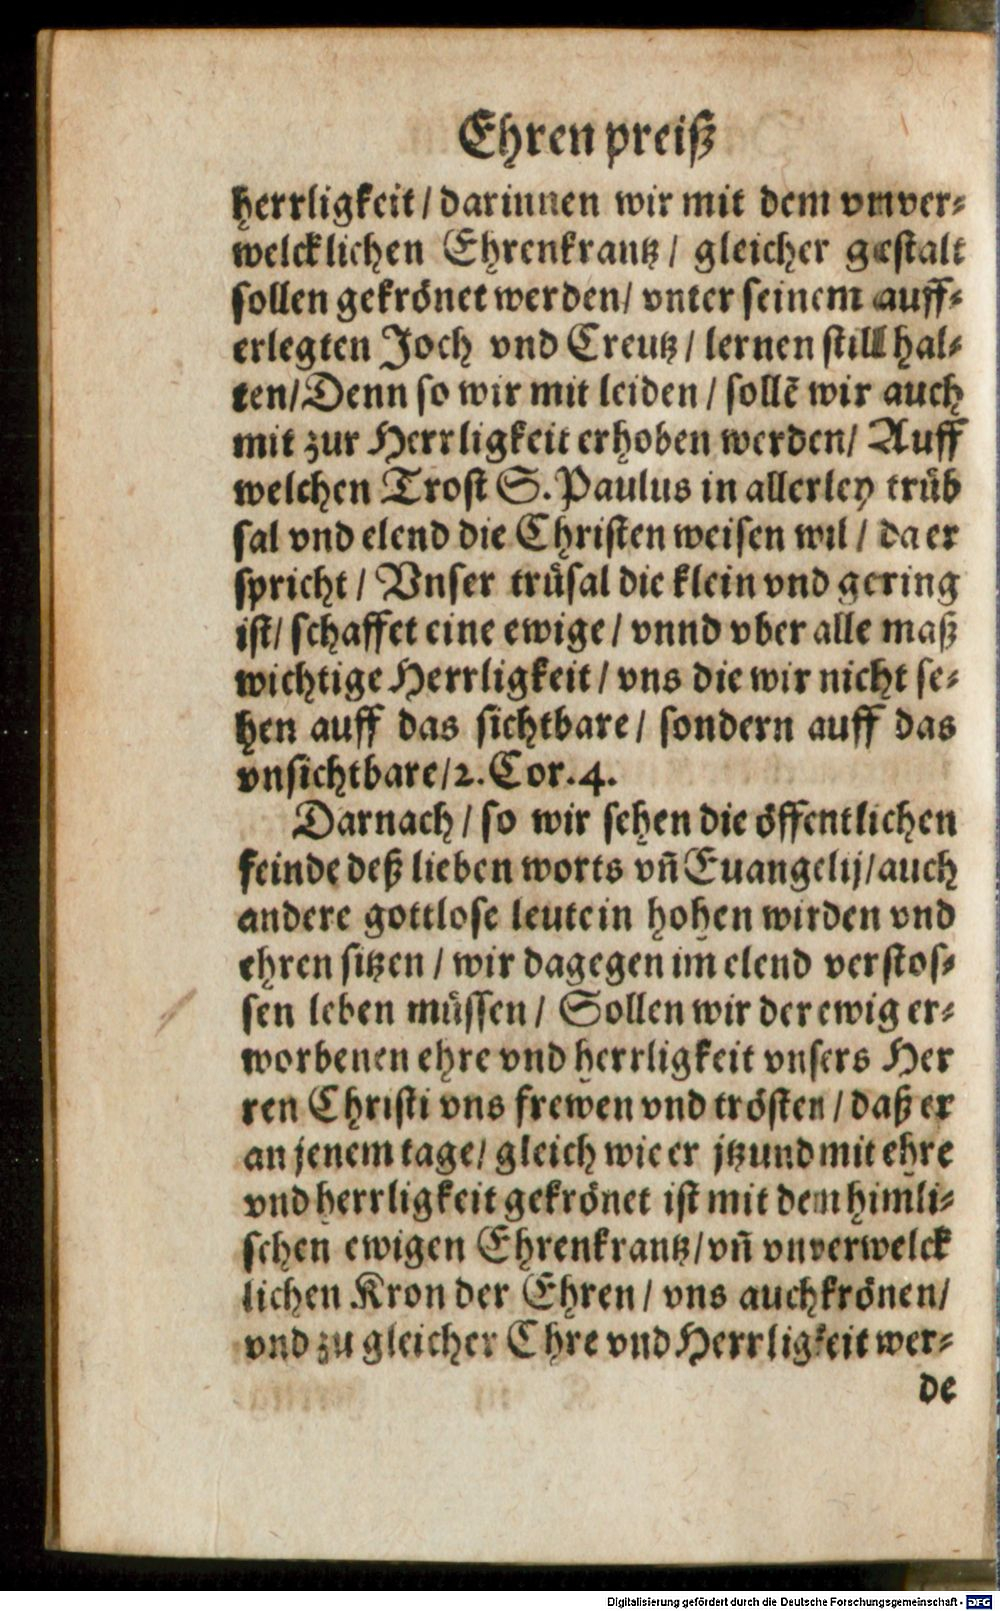 Ehren preiß
herrligkeit / darinnen wir mit dem vnver-
welcklichen Ehrenkrantz / gleicher gestalt
sollen gekrönet werden / vnter seinem auff-
erlegten Joch vnd Creutz / lernen still hal-
ten / Denn so wir mit leiden / sollẽ wir auch
mit zur Herrligkeit erhoben werden / Auff
welchen Trost S. Paulus in allerley trüb
sal vnd elend die Christen weisen wil / da er
spricht / Vnser trüsal die klein vnd gering
ist / schaffet eine ewige / vnnd vber alle maß
wichtige Herrligkeit / vns die wir nicht se-
hen auff das sichtbare / sondern auff das
vnsichtbare / 2. Cor. 4.
Darnach / so wir sehen die öffentlichen
feinde deß lieben worts vñ Euangelij / auch
andere gottlose leute in hohen wirden vnd
ehren sitzen / wir dagegen im elend verstos-
sen leben müssen / Sollen wir der ewig er-
worbenen ehre vnd herrligkeit vnsers Her
ren Christi vns frewen vnd trösten / daß er
an jenem tage / gleich wie er jtzund mit ehre
vnd herrligkeit gekrönet ist mit dem him̃li-
schen ewigen Ehrenkrantz / vñ vnverwelck
lichen Kron der Ehren / vns auch krönen /
vnd zu gleicher Ehre vnd Herrligkeit wer-
de
Digitalisierung gefördert durch die Deutsche Forschungsgemeinschaft - DFG